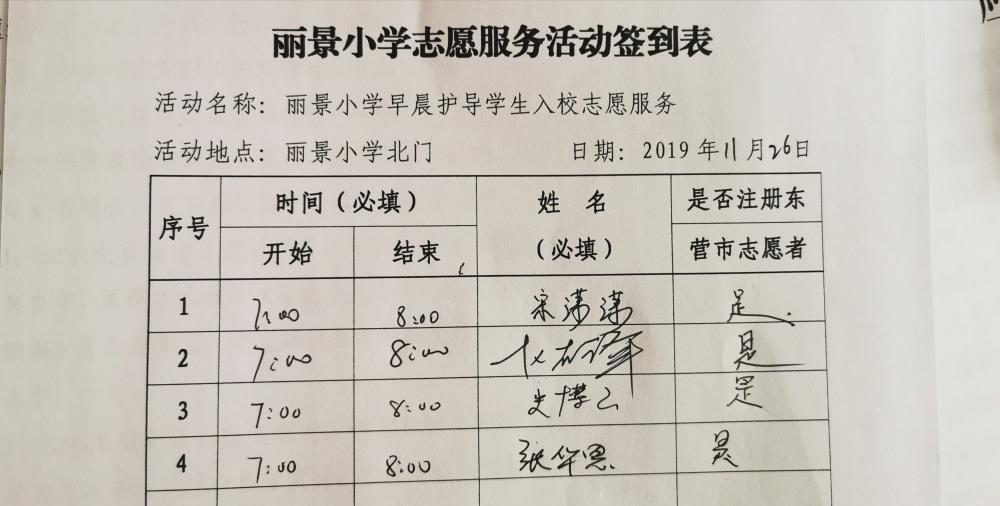 丽景小学志愿服务活动签到表
活动名称：丽景小学早晨护导学生入校志愿服务
活动地点：丽景小学北门 日期：2019年11月26日
序号 时间（必填） 姓名（必填） 是否注册东营市志愿者
开始 结束
1 7:00 8:00 宋潇潇 是.
2 7:00 8:00 是
3 7:00 8:00 史博 是
4 7:00 8:00 张华恩 是